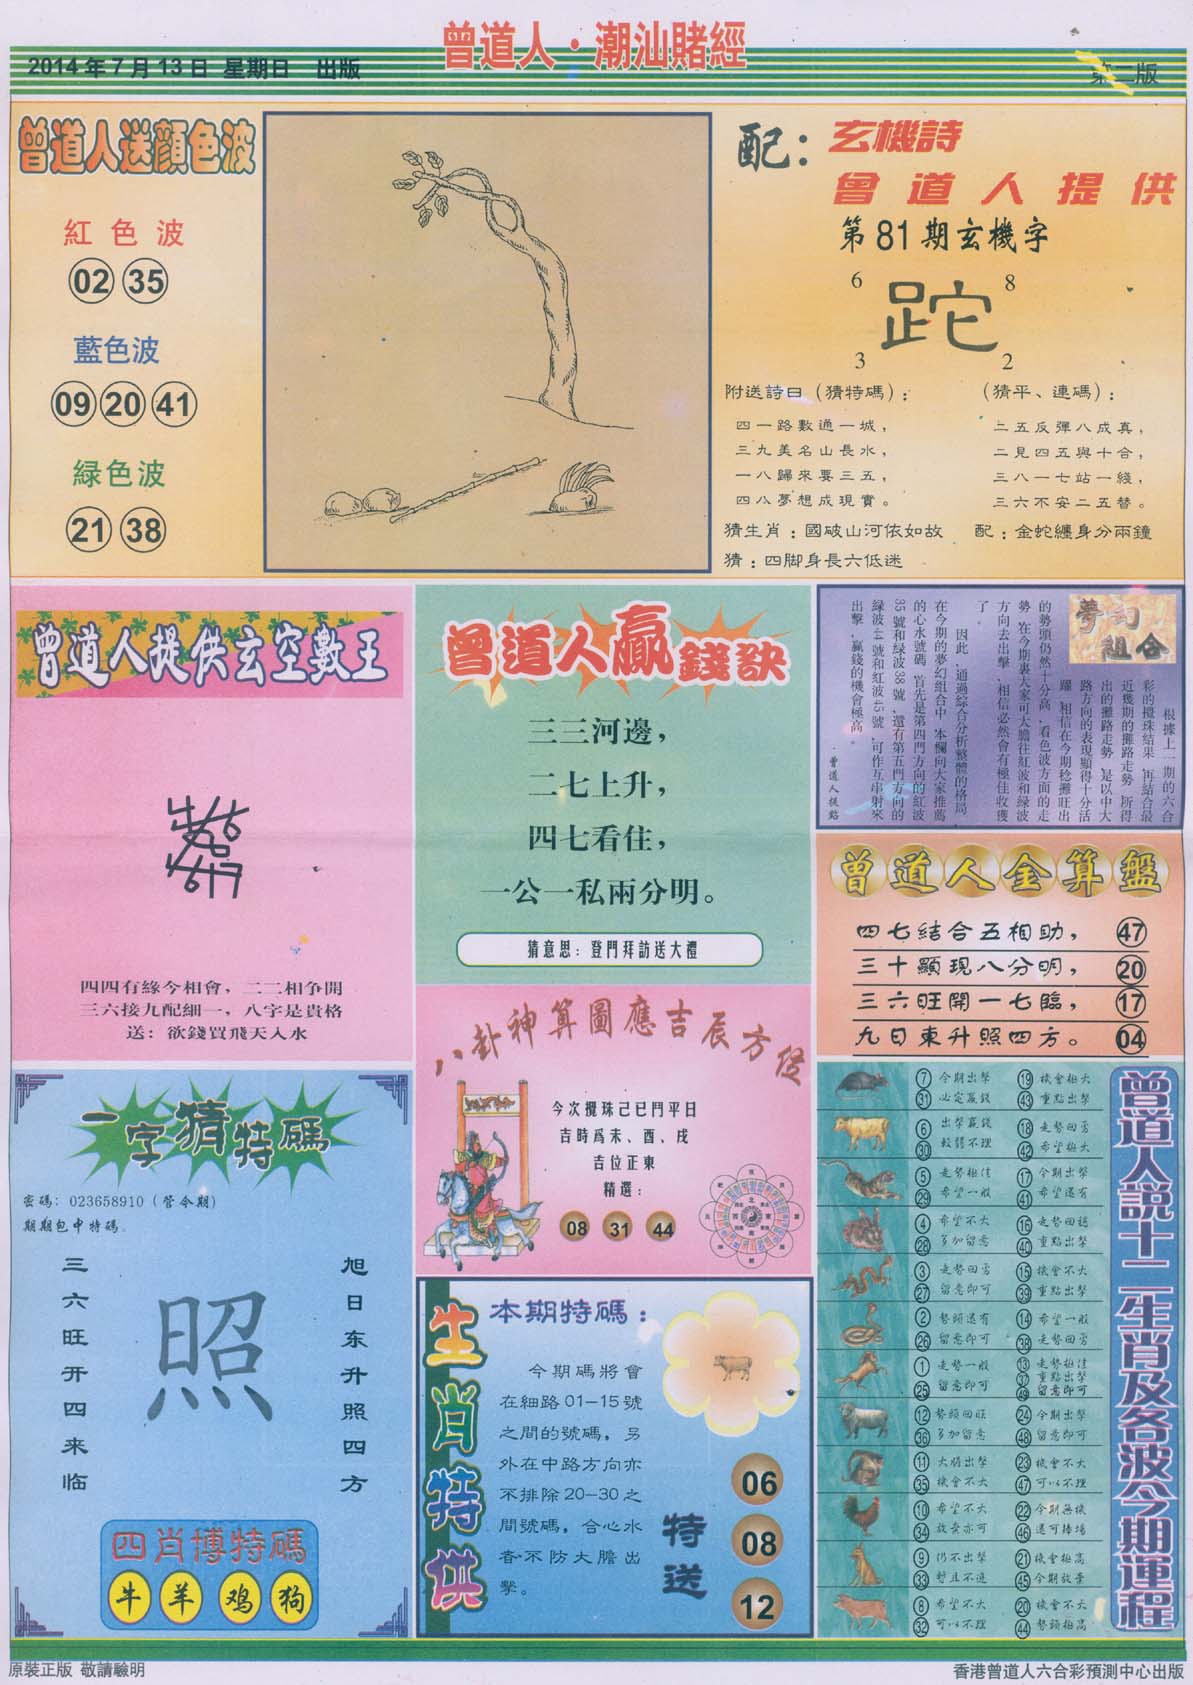 曾道人·潮汕賭經
2014年7月13日 星期日 出版
第二版
曾道人送顏色波
紅色波
02 35
藍色波
09 20 41
緑色波
21 38
配：玄機詩
曾道人提供
第81期玄機字
6 8
跎
3 2
附送詩曰（猜特碼）：
四一路數通一城，
三九美名山長水，
一八歸來要三五，
四八夢想成現實。
（猜平、連碼）：
二五反彈八成真，
二見四五與十合，
三八一七站一綫，
三六不安二五替。
猜生肖：國破山河依如故
配：金蛇纏身分兩鐘
猜：四脚身長六低迷
曾道人提供玄空數王
四四有緣今相會，二二相争開
三六接九配細一，八字是貴格
送：欲錢買飛天入水
曾道人贏錢訣
三三河邊，
二七上升，
四七看住，
一公一私兩分明。
猜意思：登門拜訪送大禮
夢幻組合
根據上一期的六合
彩的攪珠結果，再結合最
近幾期的攤路走勢，所得
出的攤路走勢，是以中大
路方向的表現顯得十分活
躍，相信在今期稔攤旺出
的勢頭仍然十分高，看色波方面的走
勢，在今期裏大家可大膽往紅波和緑波
方向去出擊，相信必然會有極佳收獲
了。
因此，通過綜合分析整體的格局，
在今期的夢幻組合中，本欄向大家推薦
的心水號碼，首先是第四門方向的紅波
35號和緑波38號，還有第五門方向的
緑波44號和紅波45號，可作互串射來
出擊，贏錢的機會極高。
·曾道人提點
曾道人金算盤
四七結合五相助， 47
三十顯現八分明， 20
三六旺開一七臨， 17
九日東升照四方。 04
八卦神算圖應吉辰方位
今次攪珠己巳鬥平日
吉時爲未、酉、戌
吉位正東
精選：
08 31 44
一字猜特碼
密碼：023658910（管令期）
期期包中特碼。
三六旺开四来临
照
旭日东升照四方
四肖博特碼
牛 羊 鸡 狗
生肖特供
本期特碼：
今期碼將會
在細路01-15號
之間的號碼，另
外在中路方向亦
不排除20-30之
間號碼，合心水
者不防大膽出
擊。
特送
06
08
12
曾道人説十二生肖及各波今期運程
7 今期出擊 19 機會極大
31 必定贏錢 43 重點出擊
6 出擊贏錢 18 走勢回勇
30 較弱不理 42 希望極大
5 走勢極佳 17 今期出擊
29 希望一般 41 希望還有
4 希望不大 16 走勢回穩
28 多加留意 40 重點出擊
3 走勢回勇 15 機會不大
27 留意即可 39 重點出擊
2 勢頭還有 14 希望一般
26 留意即可 38 走勢回勇
1 走勢一般 13 走勢極佳
37 重點出擊
25 留意即可 49 留意即可
12 勢頭回旺 24 今期出擊
36 多加留意 48 留意即可
11 大膽出擊 23 機會不大
35 機會不大 47 可以不理
10 希望不大 22 今期無機
34 放棄亦可 46 還可捧場
9 仍不出擊 21 機會極高
33 暫且不進 45 今期放棄
8 希望不大 20 機會不大
32 可以不理 44 勢頭極高
原裝正版 敬請驗明
香港曾道人六合彩預測中心出版